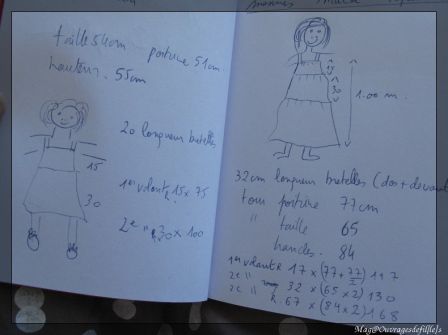 taille 54cm
poitrine 51cm
hauteur. 55cm
20 longueur bretelles
15
30
1er volant R 15 x 75
2e " R 30 x 100
15
30
1.00 m.
32cm longueur bretelles (dos + devant
tour poitrine 77cm
" taille 65
hanches. 84
1er volant R 17 x (77 + 77/2) 197
2e " 32 x (65 x 2) 130
2e " R. 67 x (84 x 2) 168
Mag@Ouvragesdefil(le)s